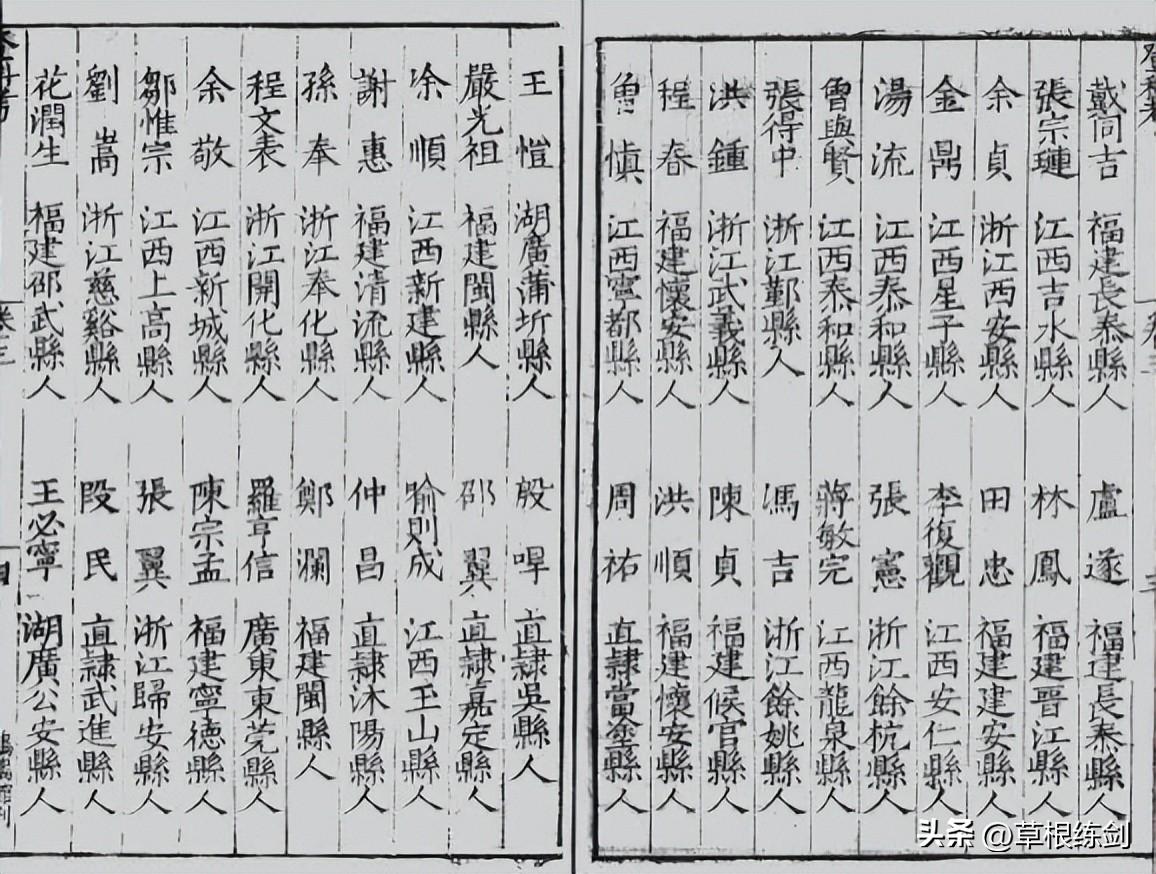 戴同吉 福建長泰縣人 盧遂 福建長泰縣人
張宗璉 江西吉水縣人 林鳳 福建晉江縣人
余貞 浙江西安縣人 田忠 福建建安縣人
金鼎 江西星子縣人 李復觀 江西安仁縣人
湯流 江西泰和縣人 張憲 浙江餘杭縣人
魯與賢 江西泰和縣人 蔣敏完 江西龍泉縣人
張得中 浙江鄞縣人 馮吉 浙江餘姚縣人
洪鍾 浙江武義縣人 陳貞 福建候官縣人
程春 福建懷安縣人 洪順 福建懷安縣人
魯慎 江西寧都縣人 周祐 直隷當塗縣人
王愷 湖廣蒲圻縣人 殷哻 直隷吳縣人
嚴光祖 福建閩縣人 邵翼 直隷嘉定縣人
涂順 江西新建縣人 喻則成 江西玉山縣人
謝惠 福建清流縣人 仲昌 直隷沐陽縣人
孫奉 浙江奉化縣人 鄭瀾 福建閩縣人
程文表 浙江開化縣人 羅亨信 廣東東莞縣人
余敬 江西新城縣人 陳宗孟 福建寧德縣人
鄒惟宗 江西上高縣人 張翼 浙江歸安縣人
劉嵩 浙江慈谿縣人 段民 直隷武進縣人
花潤生 福建邵武縣人 王必寧 湖廣公安縣人
头条 @草根练剑